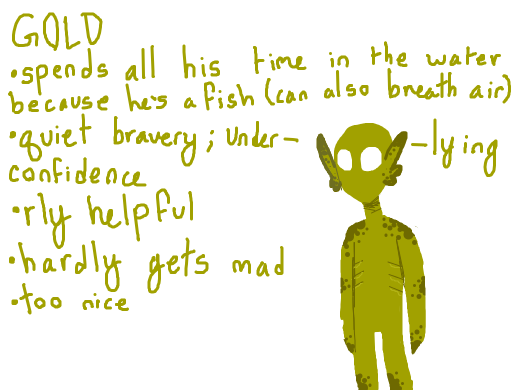 GOLD
•spends all his time in the water
because he's a fish (can also breath air)
•quiet bravery; under- -lying
confidence
•rly helpful
•hardly gets mad
•too nice